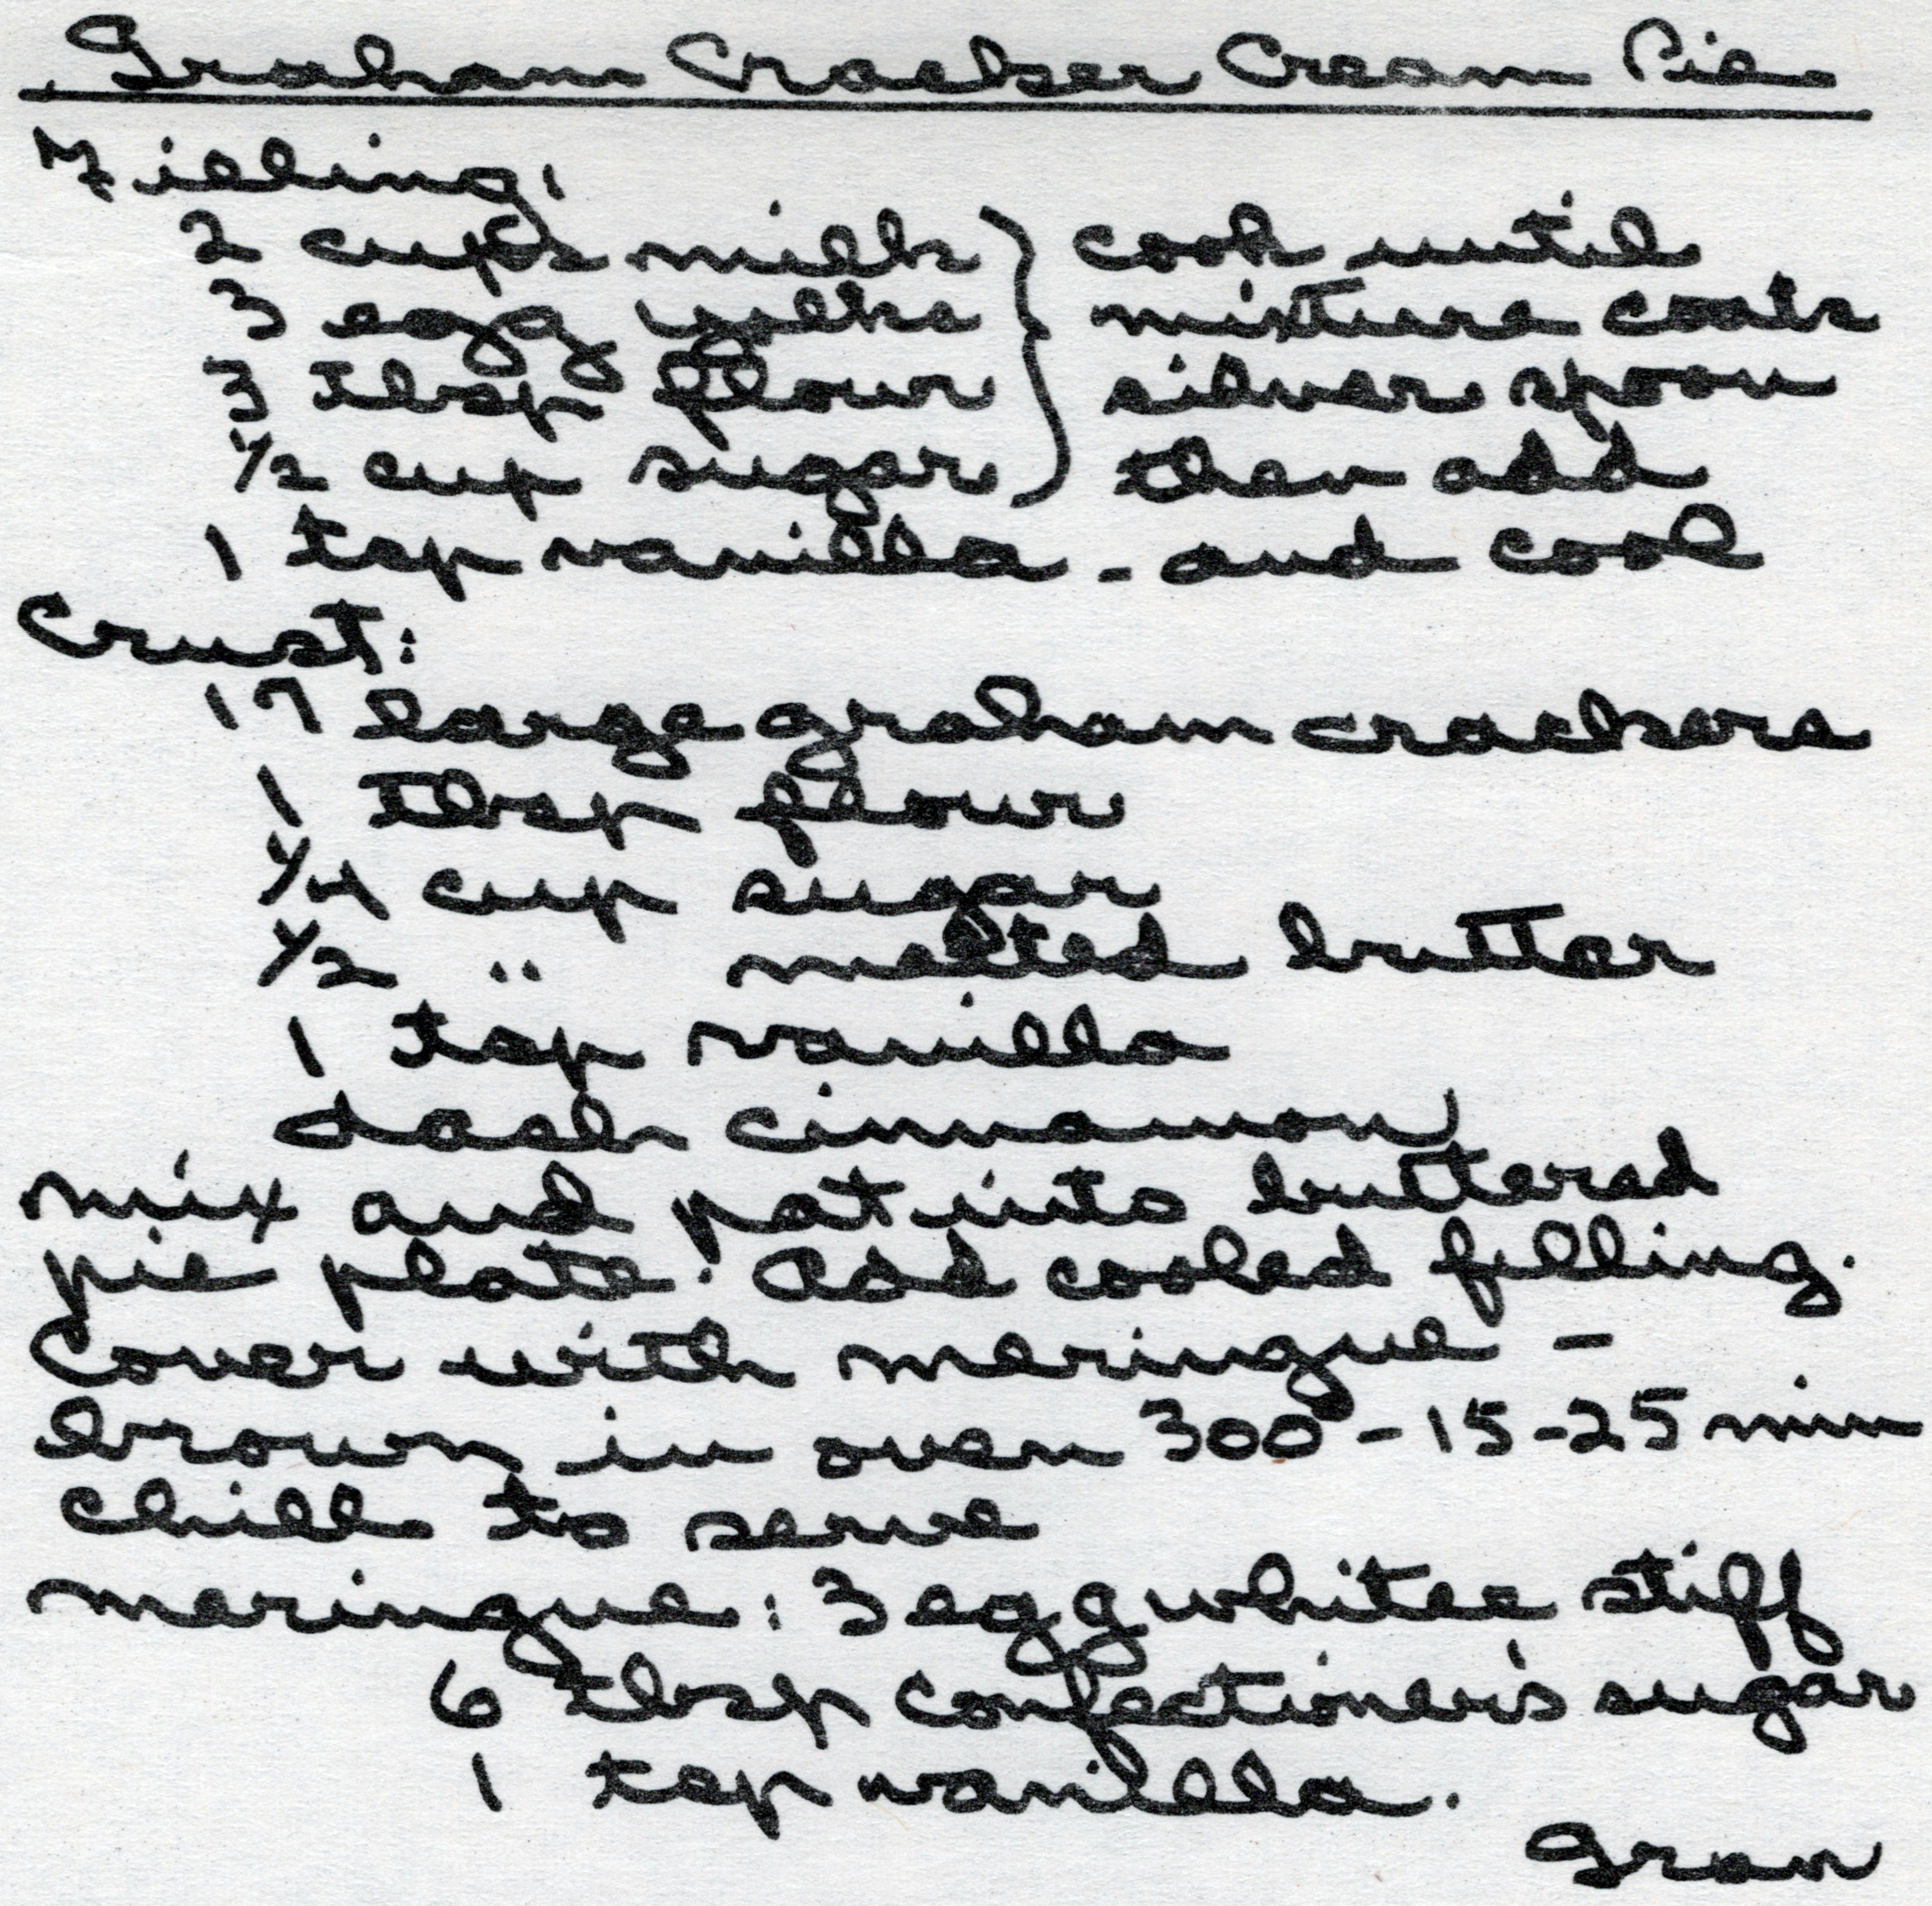 Graham Cracker Cream Pie
Filling:
2 cups milk } cook until
3 egg yolks } mixture coats
3 Tbsp flour } silver spoon
1/2 cup sugar } then add
1 tsp vanilla - and cool
Crust:
17 large graham crackers
1 Tbsp flour
1/4 cup sugar
1/2 " melted butter
1 tsp vanilla
dash cinnamon
mix and pat into buttered
pie plate. Add cooled filling.
Cover with meringue -
brown in oven 300° - 15-25 min
chill to serve
meringue: 3 egg whites stiff
6 tbsp confectioner's sugar
1 tsp vanilla.
Gran